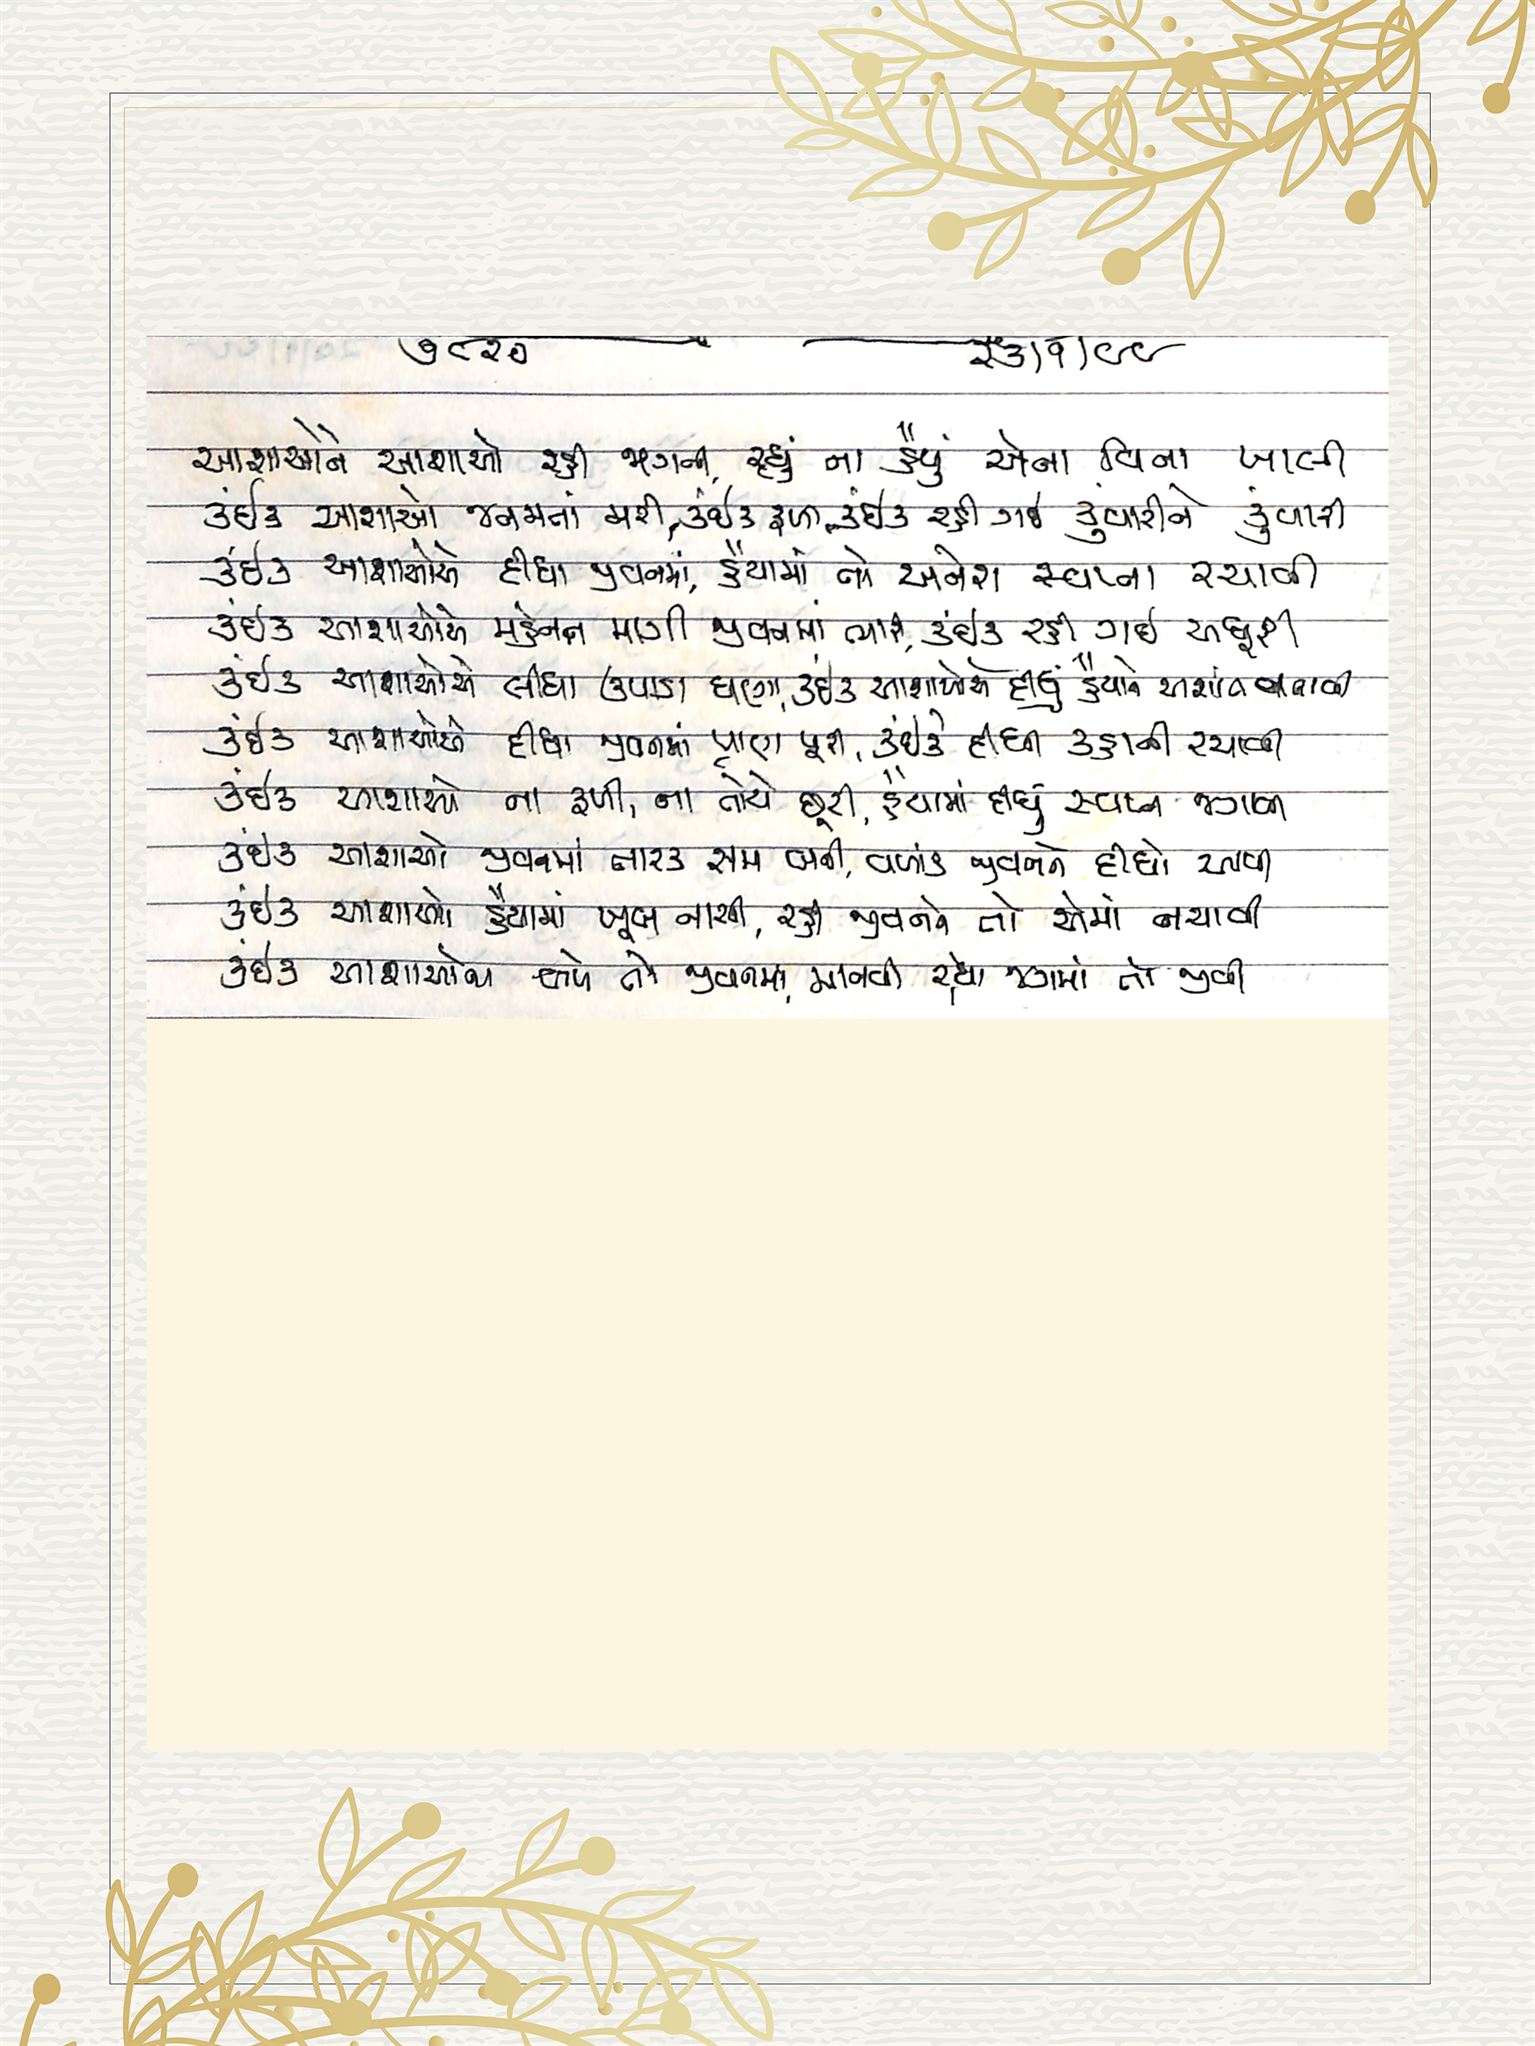 ૭૮૨૦ ૨૩/૧/૯૯
આશાઓને આશાઓ રહી જાગતી, રહ્યું ના હૈયું એના વિના ખાલી
કંઈક આશાઓ જનમતાં મરી, કંઈક ફળી, કંઈક રહી ગઈ કુંવારીને કુંવારી
કંઈક આશાઓએ દીધા જીવનમાં, હૈયામાં તો અનેરા સ્વપ્ના રચાવી
કંઈક આશાઓએ મહેનત માગી જીવનમાં ત્યારે, કંઈક રહી ગઈ અધૂરી
કંઈક આશાઓએ લીધા ઉપાડા ઘણા, કંઈક આશાઓએ દીધું હૈયાને અશાંત બનાવી
કંઈક આશાઓએ દીધા જીવનમાં પ્રાણ પૂરી, કંઈકે દીધી કહાની રચાવી
કંઈક આશાઓ ના ફળી, ના તોયે છૂટી, હૈયામાં દીધું સ્વપ્ન જગાવી
કંઈક આશાઓ જીવનમાં તારક સમ બની, વળાંક જીવનને દીધો આપી
કંઈક આશાઓ હૈયામાં ખૂબ નાચી, રહી જીવનને તો એમાં નચાવી
કંઈક આશાઓના બળે તો જીવનમાં, માનવી રહ્યા જગમાં તો જીવી